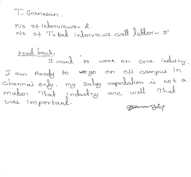 T. Ganesan.
No of interviews - 2
No of Total interviews call letter - 5
Feed back
I want to work on core industry.
I am Ready to go on off campus in
Chennai only, my salary expectation is not a
mater that industry are well that
was important.